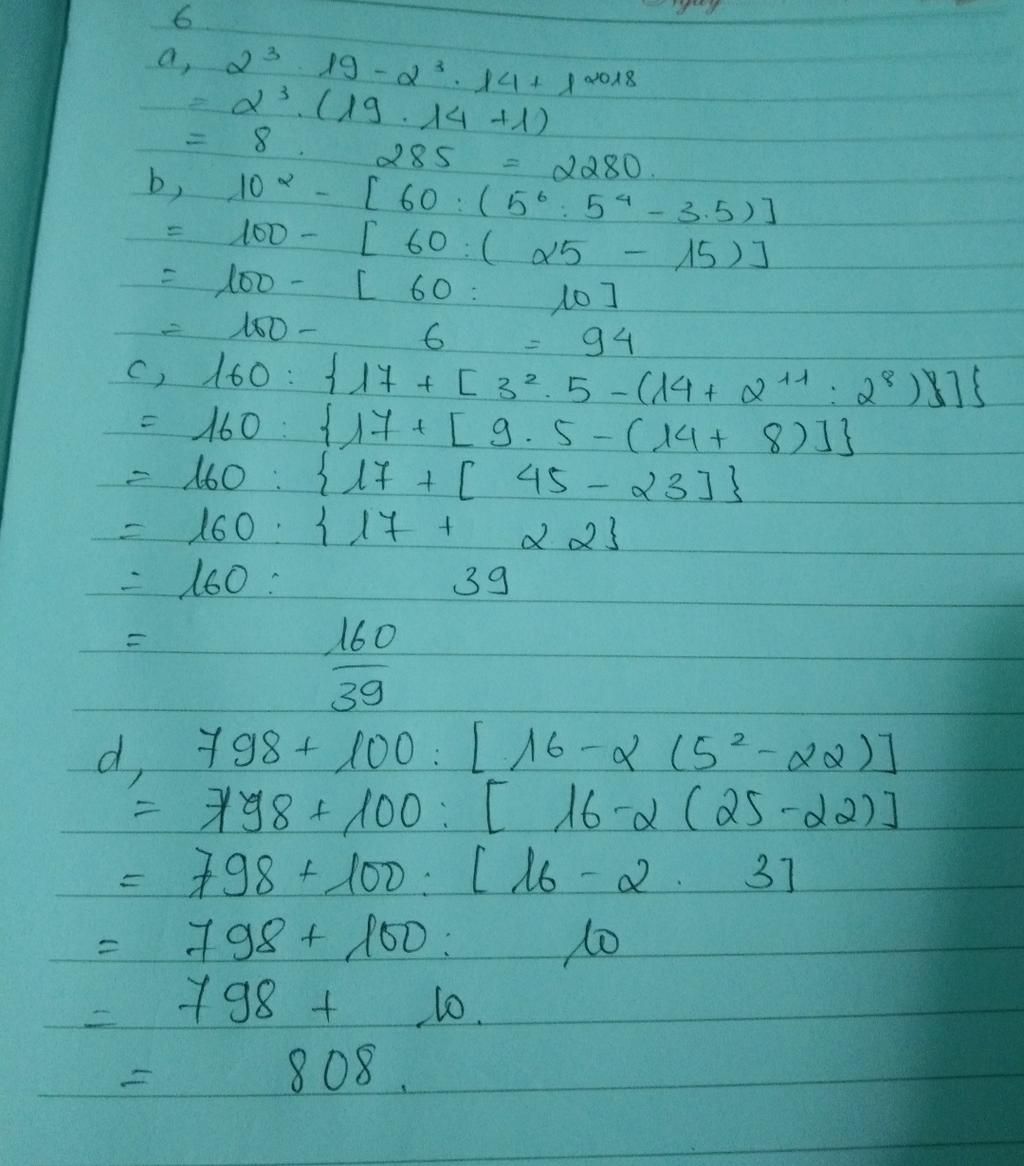 6
a, 2³ . 19 - 2³ . 14 + 1²⁰¹⁸
= 2³ . (19 . 14 + 1)
= 8 . 285 = 2280.
b, 10² - [ 60 : ( 5⁶ : 5⁴ - 3.5 ) ]
= 100 - [ 60 : ( 25 - 15 ) ]
= 100 - [ 60 : 10 ]
= 100 - 6 = 94
c, 160 : { 17 + [ 3² . 5 - ( 14 + 2¹¹ : 2⁸ ) ] }
= 160 : { 17 + [ 9 . 5 - ( 14 + 8 ) ] }
= 160 : { 17 + [ 45 - 23 ] }
= 160 : { 17 + 22 }
= 160 : 39
= 160
39
d, 798 + 100 : [ 16 - 2 ( 5² - 22 ) ]
= 798 + 100 : [ 16 - 2 ( 25 - 22 ) ]
= 798 + 100 : [ 16 - 2 . 3 ]
= 798 + 100 : 10
= 798 + 10.
= 808.